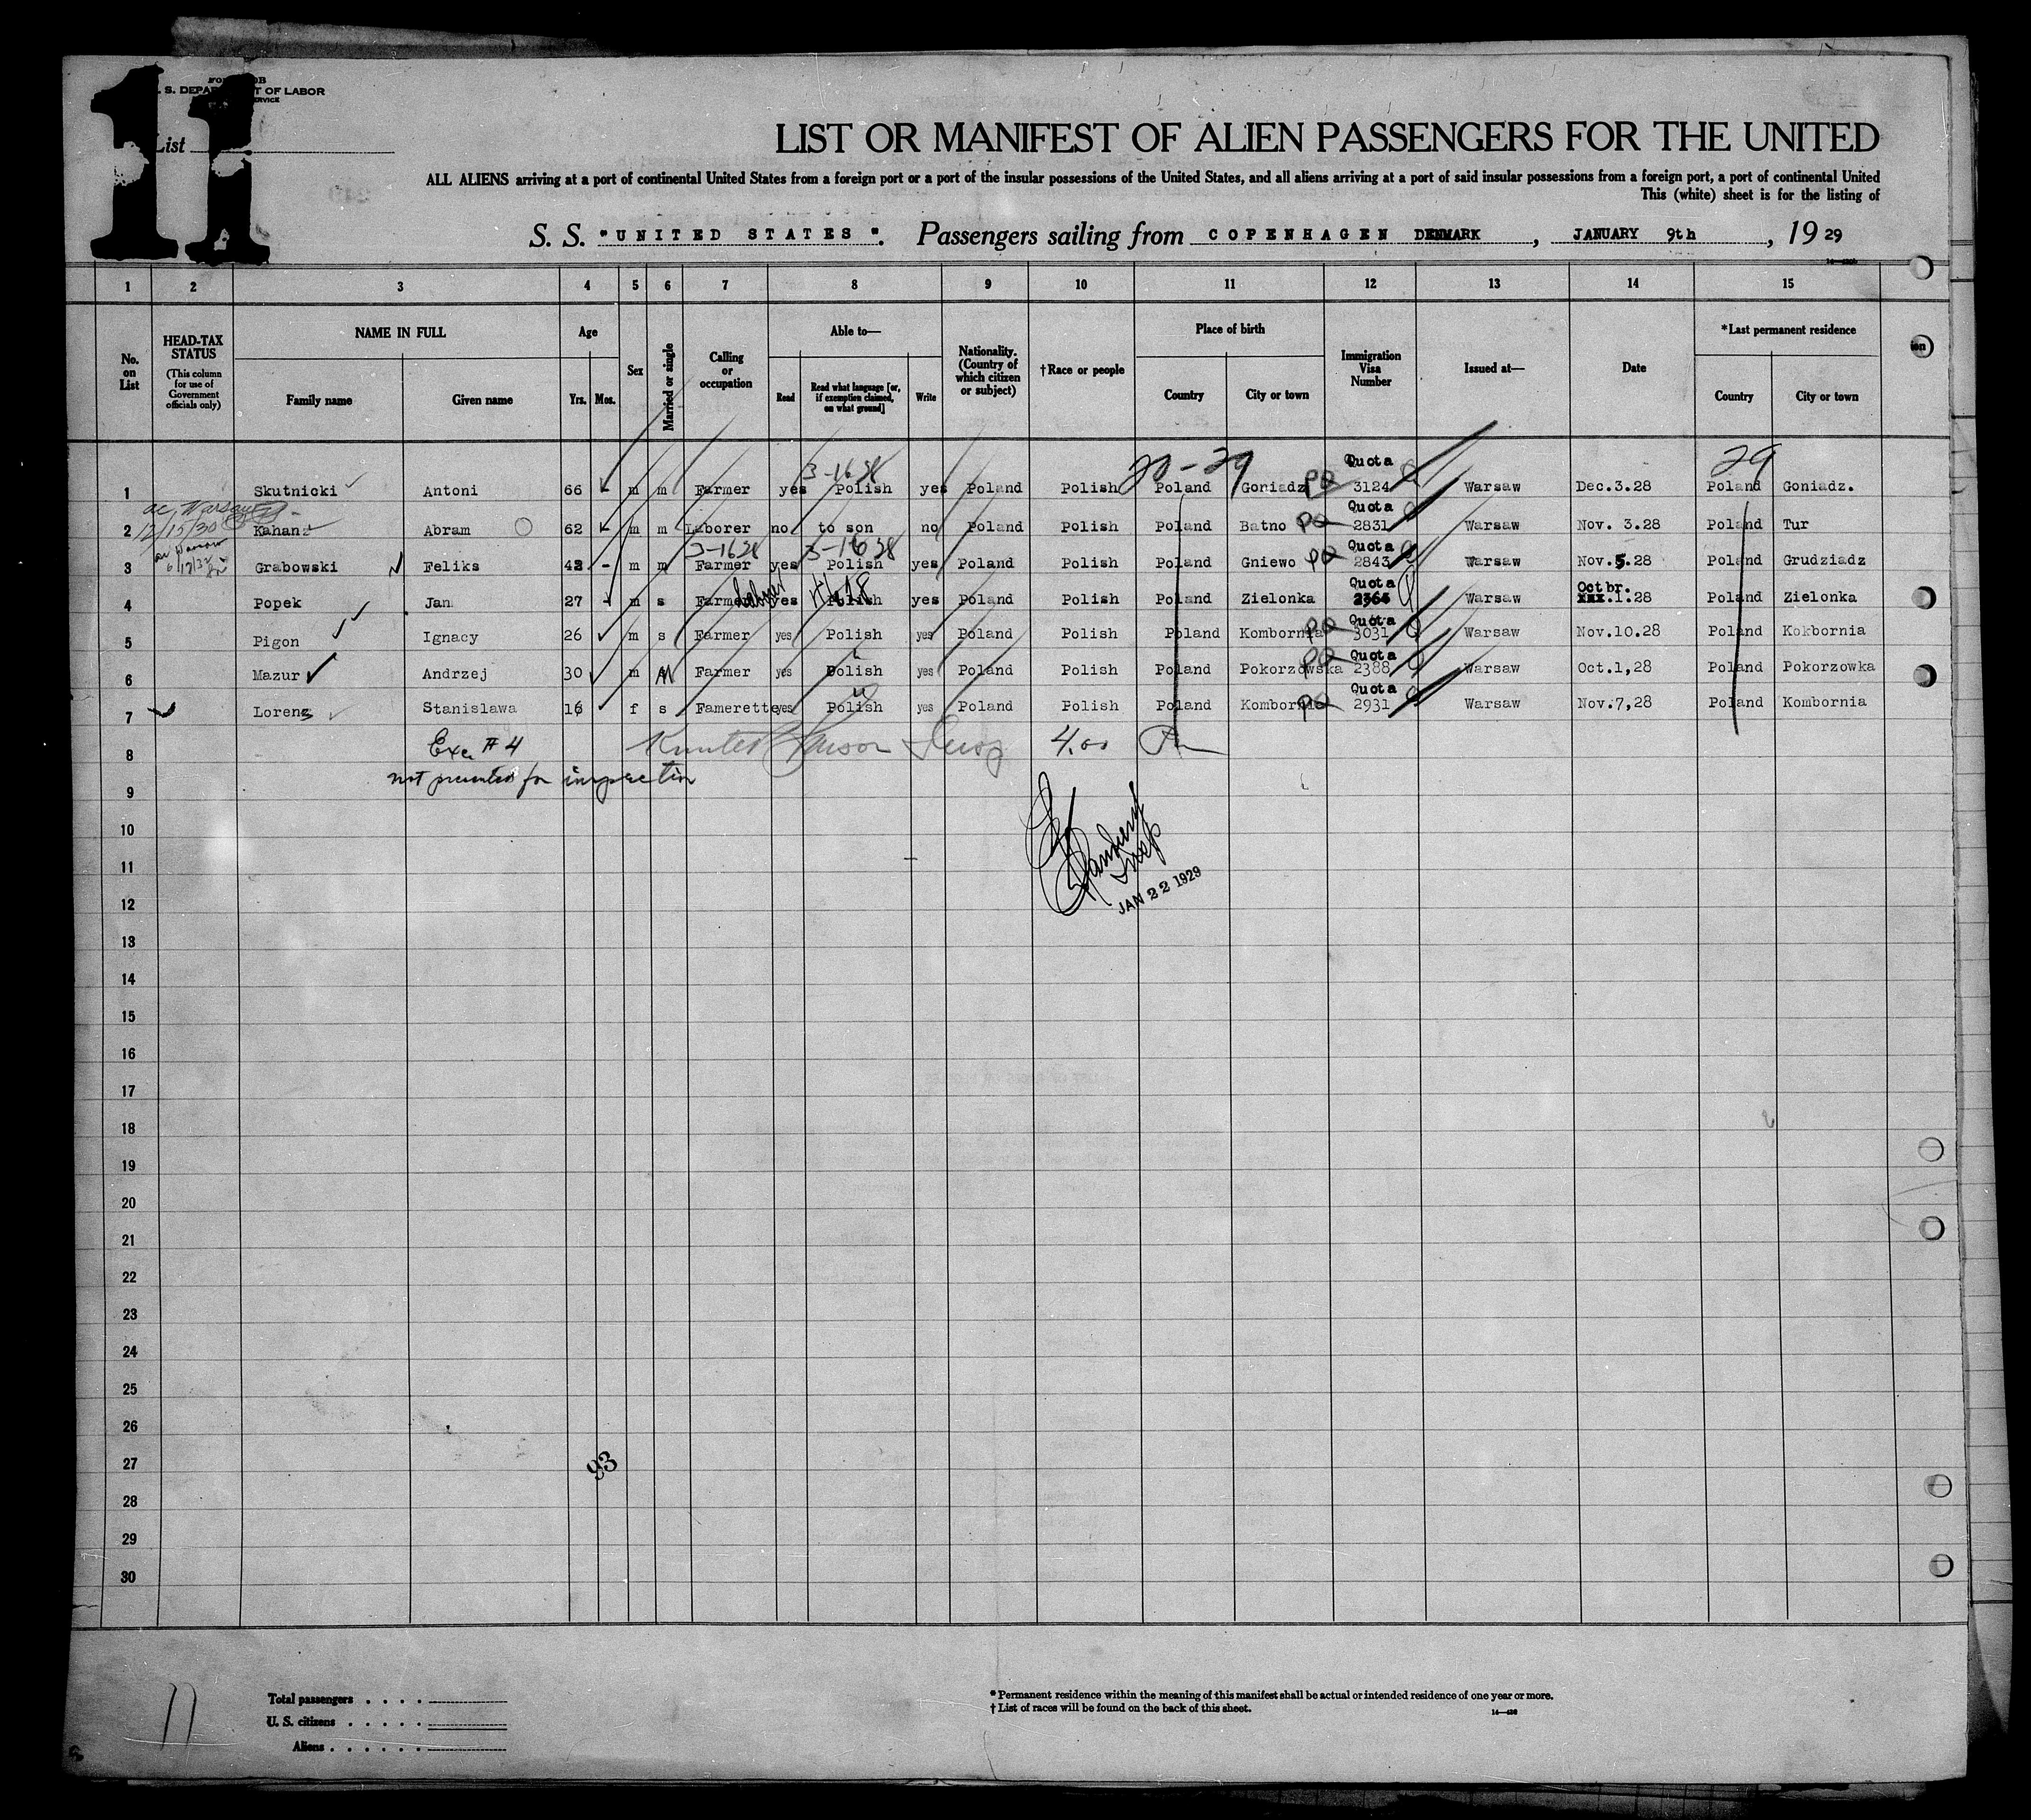 11
U. S. DEPARTMENT OF LABOR
List
LIST OR MANIFEST OF ALIEN PASSENGERS FOR THE UNITED
ALL ALIENS arriving at a port of continental United States from a foreign port or a port of the insular possessions of the United States, and all aliens arriving at a port of said insular possessions from a foreign port, a port of continental United
This (white) sheet is for the listing of
S. S. "UNITED STATES". Passengers sailing from COPENHAGEN DENMARK, JANUARY 9th, 1929
1 2 3 4 5 6 7 8 9 10 11 12 13 14 15
No. on List
HEAD-TAX STATUS (This column for use of Government officials only)
NAME IN FULL Family name Given name
Age Yrs. Mos.
Sex
Married or single
Calling or occupation
Able to— Read Read what language [or, if exemption claimed, on what ground] Write
Nationality. (Country of which citizen or subject)
†Race or people
Place of birth Country City or town
Immigration Visa Number
Issued at—
Date
*Last permanent residence Country City or town
3-1628 20-29 Quota 29
1 Skutnicki Antoni 66 - m m Farmer yes Polish yes Poland Polish Poland Goniadz PQ 3124 Warsaw Dec.3.28 Poland Goniadz.
ac. Warsaw
12/15/30
Quota
2 Kahanz Abram 62 - m m Laborer no to son no Poland Polish Poland Batno PQ 2831 Warsaw Nov. 3.28 Poland Tur
3-1628 3-1628 Quota
3 Grabowski Feliks 42 - m m Farmer yes Polish yes Poland Polish Poland Gniewo PQ 2843 Warsaw Nov.5.28 Poland Grudziadz
Quota Octbr.
4 Popek Jan 27 m s Farmer Laborer yes Polish yes Poland Polish Poland Zielonka 2364 Warsaw xxx.1.28 Poland Zielonka
Quota
5 Pigon Ignacy 26 m s Farmer yes Polish yes Poland Polish Poland Kombornia PQ 3031 Warsaw Nov.10.28 Poland Kokbornia
Quota
6 Mazur Andrzej 30 m M Farmer yes Polish yes Poland Polish Poland Pokorzowska PQ 2388 Warsaw Oct.1,28 Poland Pokorzowka
Quota
7 Lorenz Stanislawa 16 f s Famerette yes Polish yes Poland Polish Poland Kombornia PQ 2931 Warsaw Nov.7,28 Poland Kombornia
8 Exc # 4 4.00
not presented for inspection
9
10
11
JAN 22 1929
12
13
14
15
16
17
18
19
20
21
22
23
24
25
26
27 93
28
29
30
11
Total passengers
U. S. citizens
Aliens
*Permanent residence within the meaning of this manifest shall be actual or intended residence of one year or more.
†List of races will be found on the back of this sheet.